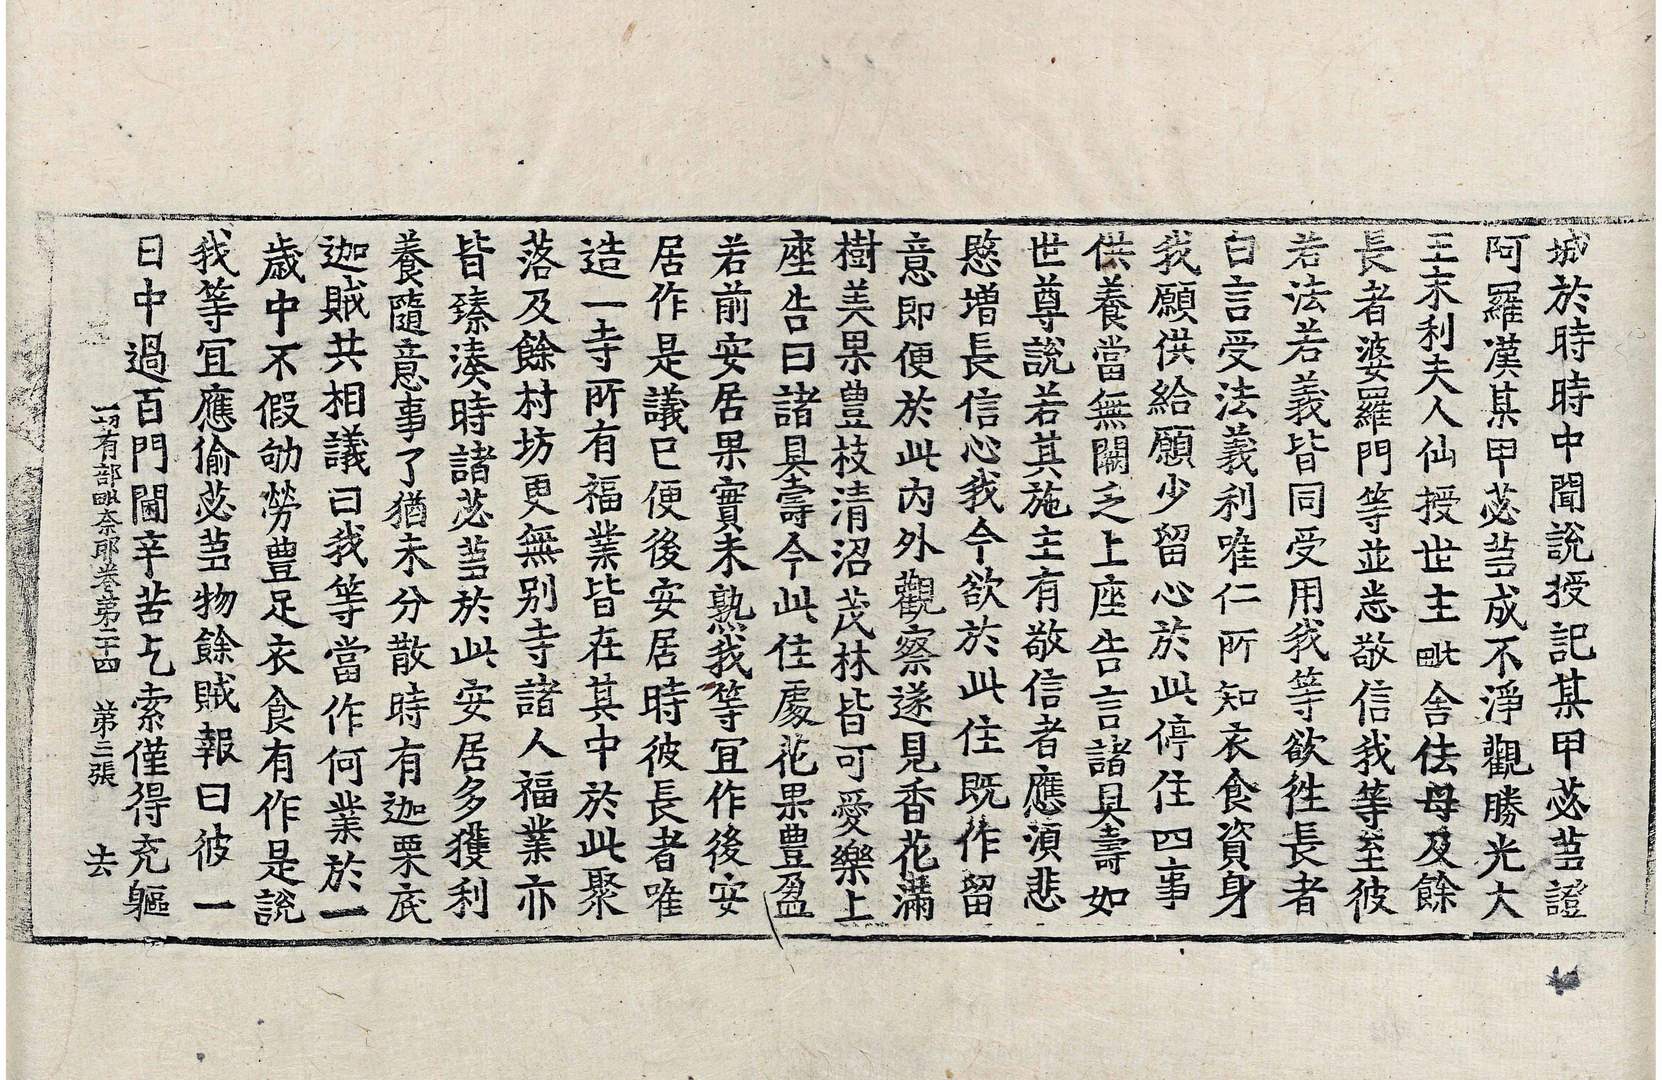 城於時時中聞說授記某甲苾芻證
阿羅漢某甲苾芻成不淨觀勝光大
王末利夫人仙授世主毗舍佉母及餘
長者婆羅門等並悉敬信我等至彼
若法若義皆同受用我等欲往長者
白言受法義利唯仁所知衣食資身
我願供給願少留心於此停住四事
供養當無闕乏上座告言諸具壽如
世尊說若其施主有敬信者應湏悲
愍增長信心我今欲於此住旣作留
意即便於此内外觀察遂見香花滿
樹美果豊枝清沼茂林皆可愛樂上
座告曰諸具壽今此住處花果豊盈
若前安居果實未熟我等宜作後安
居作是議已便後安居時彼長者唯
造一寺所有福業皆在其中於此聚
落及餘村坊更無別寺諸人福業亦
皆臻湊時諸苾芻於此安居多獲利
養隨意事了猶未分散時有迦栗底
迦賊共相議曰我等當作何業於一
歲中不假劬勞豊足衣食有作是說
我等宜應偷苾芻物餘賊報曰彼一
日中過百門閫辛苦乞索僅得充軀
一切有部毗奈耶卷第二十四　第三張　去